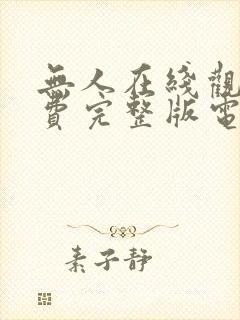 無人在綫觀
費完整版電
素子静